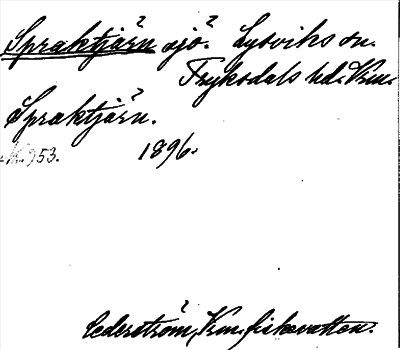 Spraktjärn sjö. Lysviks sn.
Fryksdals hd. Vrm.
Spraktjärn.
1896.
953.
Cederström, Vrm. fiskevatten.